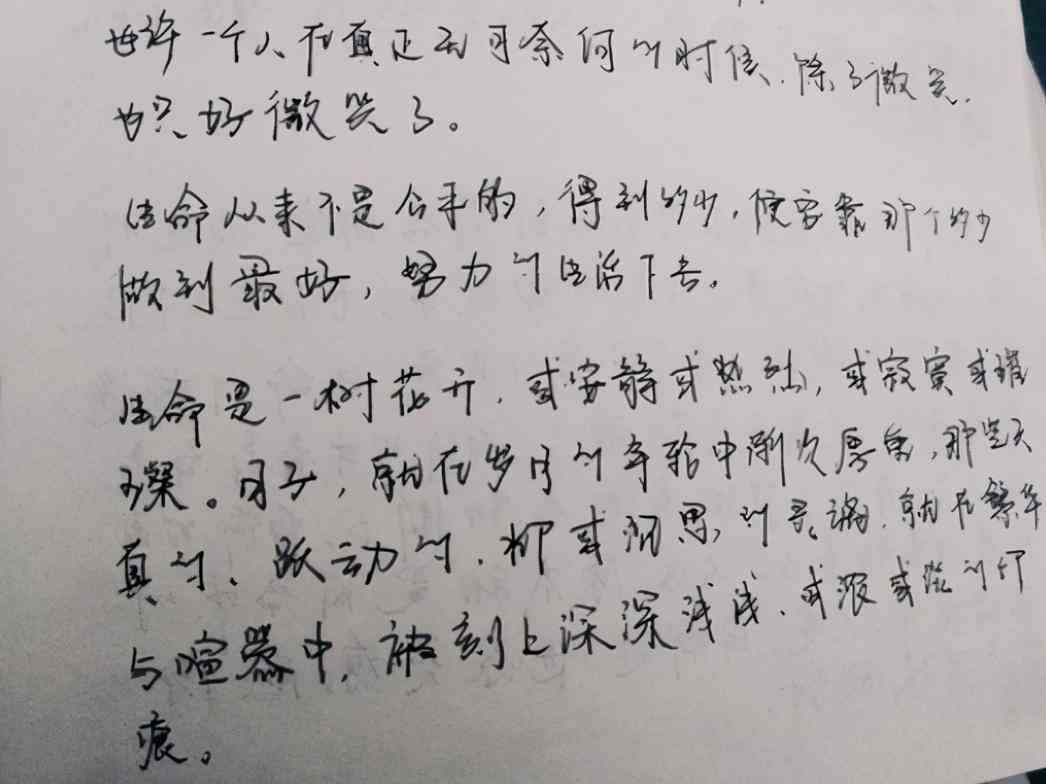 也许一个人在真正无可奈何的时候、除了微笑,
也只好微笑了。
生命从来不是公平的,得到多少,便要靠那个多少
做到最好,努力的生活下去。
生命是一树花开,或安静或热烈,或寂寞或璀
璨。日子,就在岁月的年轮中渐次厚重,那些天
真的、跃动的、抑或沉思的灵魂,就在繁华
与喧嚣中,被刻上深深浅浅、或浓或淡的印
痕。